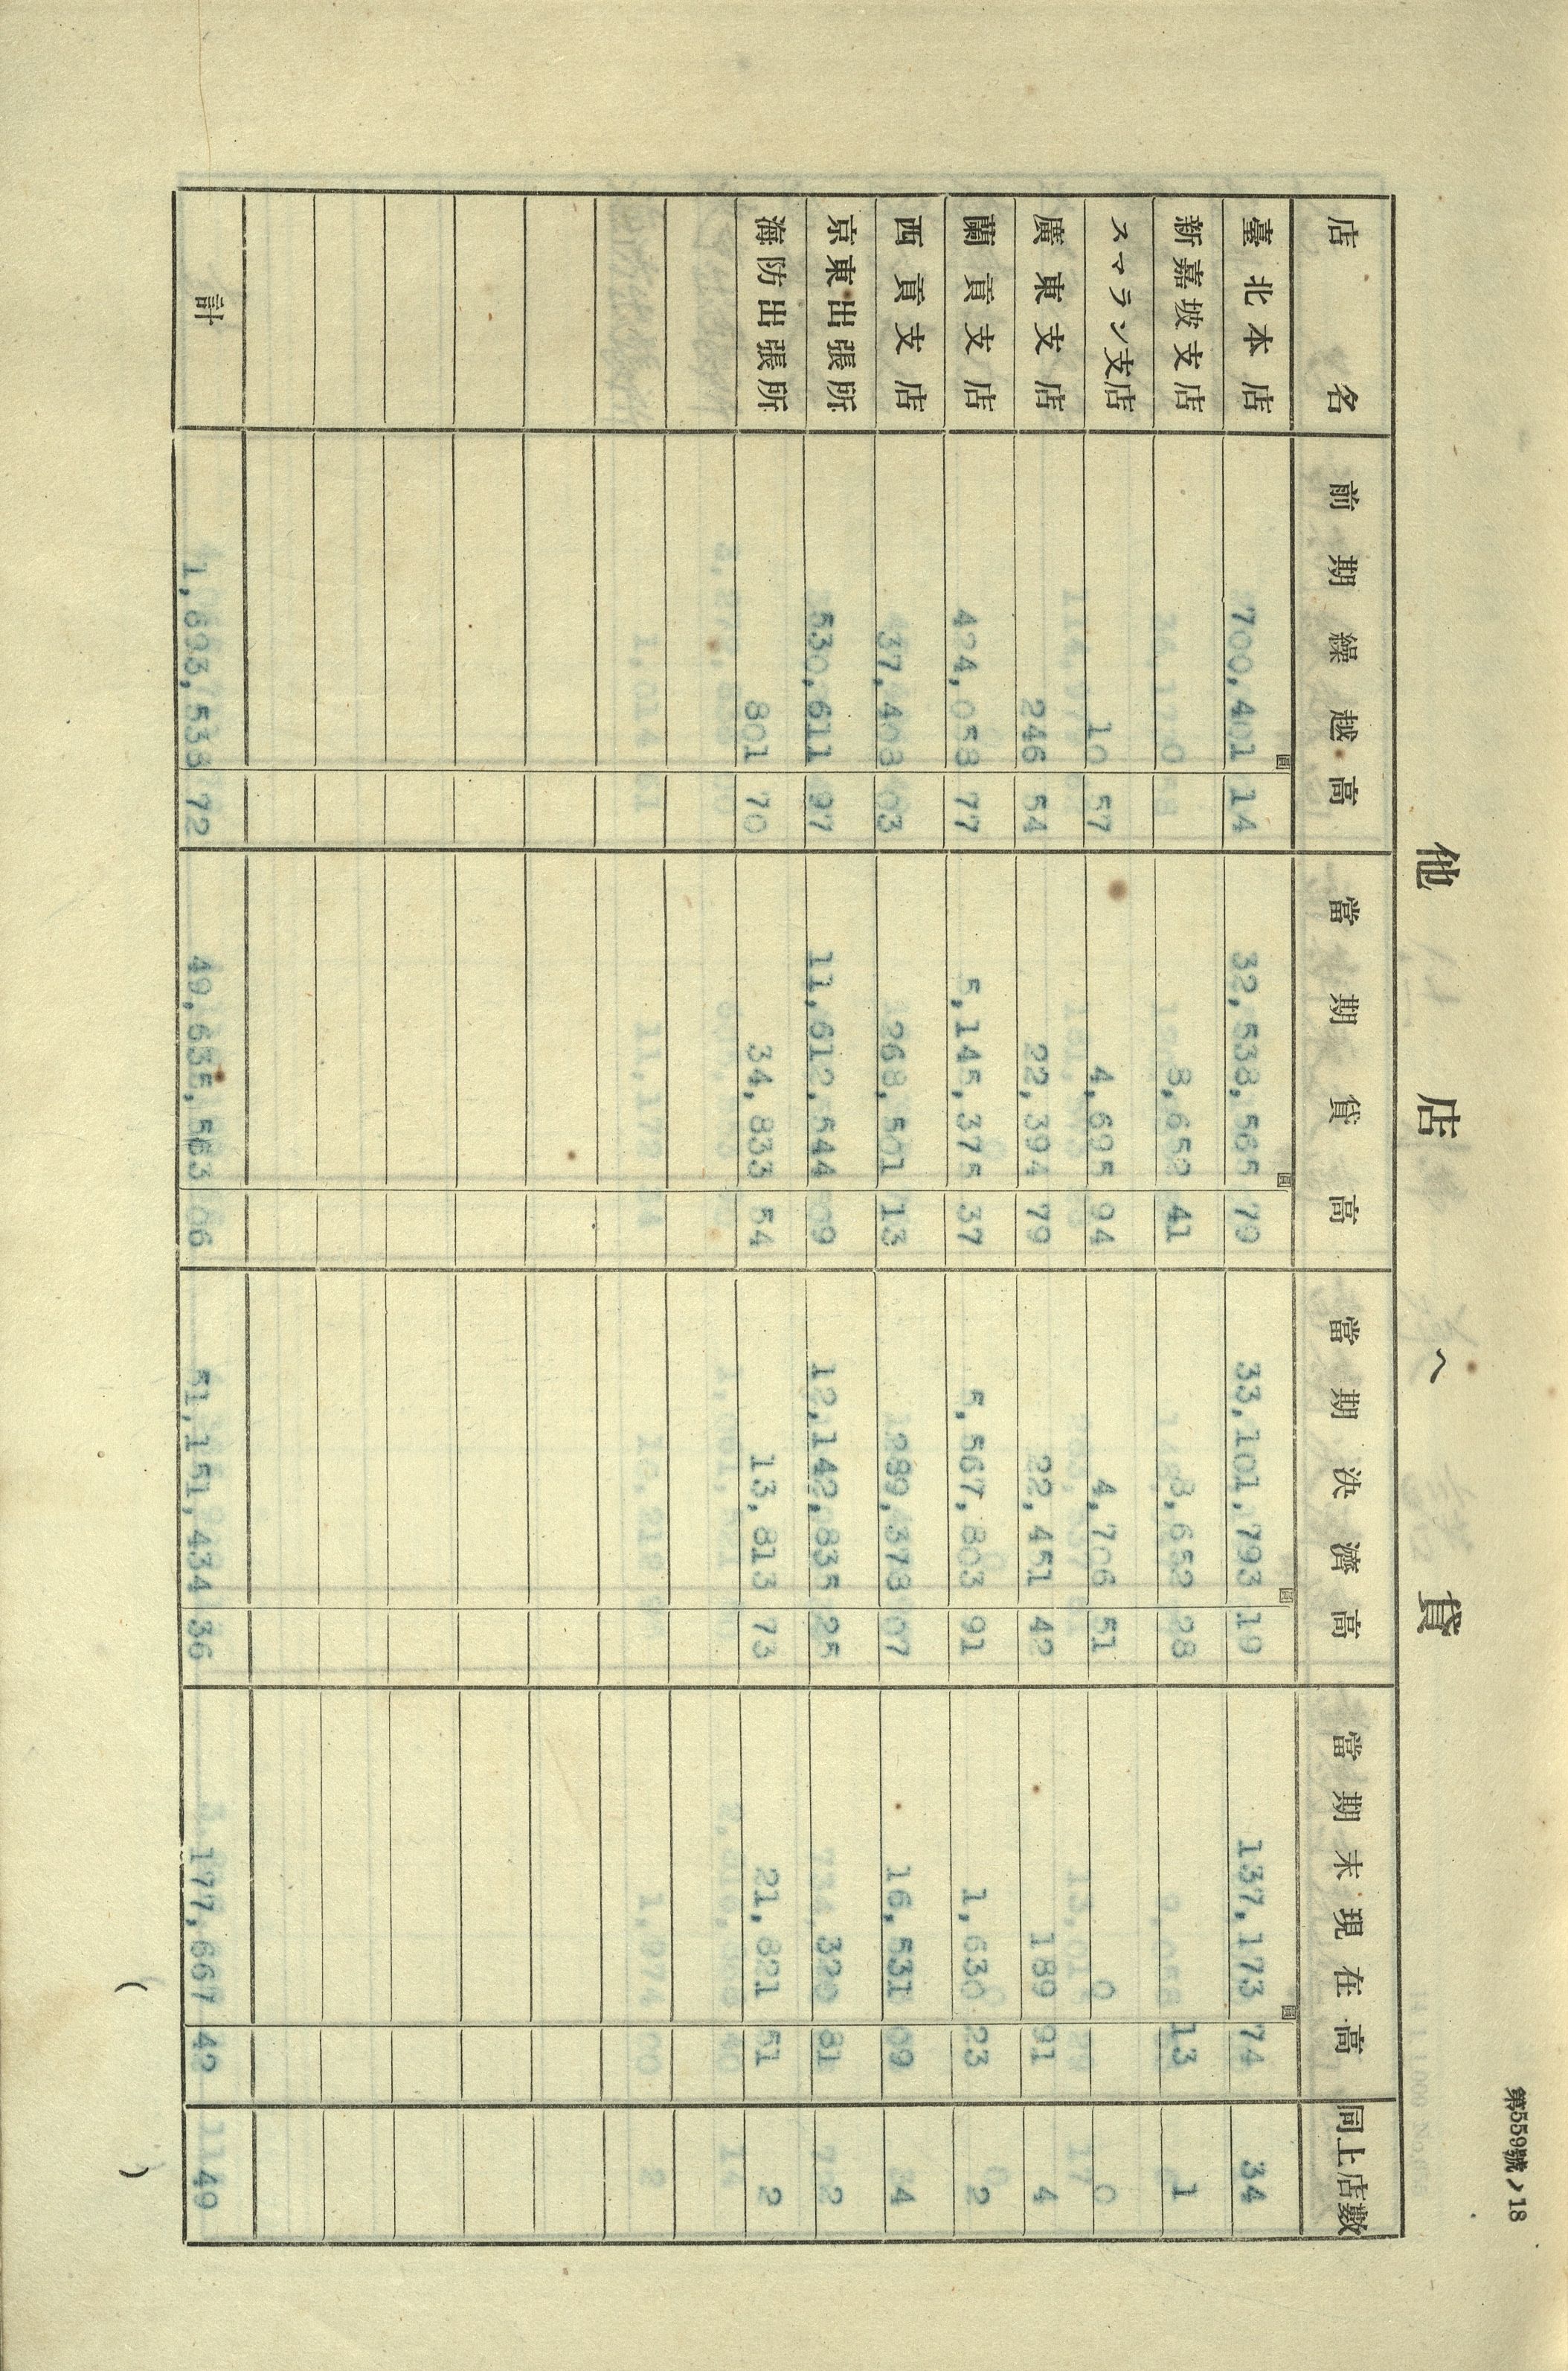 第559號ノ18
他店へ貸
店名 前期繰越高 當期貸高 當期決濟高 當期末現在高 同上店數
圓 圓 圓 圓
臺北本店 700,401 14 32,538,565 79 33,101,793 19 137,173 74 34
新嘉坡支店 8,652 41 8,652 28 13 1
スマラン支店 10 57 4,695 94 4,706 51 0 0
廣東支店 246 54 22,394 79 22,451 42 189 91 4
蘭貢支店 424,058 77 5,145,375 37 5,567,803 91 1,630 23 2
西貢支店 37,408 03 268,501 13 289,378 07 16,531 09 4
京東出張所 530,611 97 11,612,544 09 12,142,835 25 320 81 2
海防出張所 801 70 34,833 54 13,813 73 21,821 51 2
計 1,693,538 72 49,635,563 06 51,151,434 36 177,667 42 49
( )